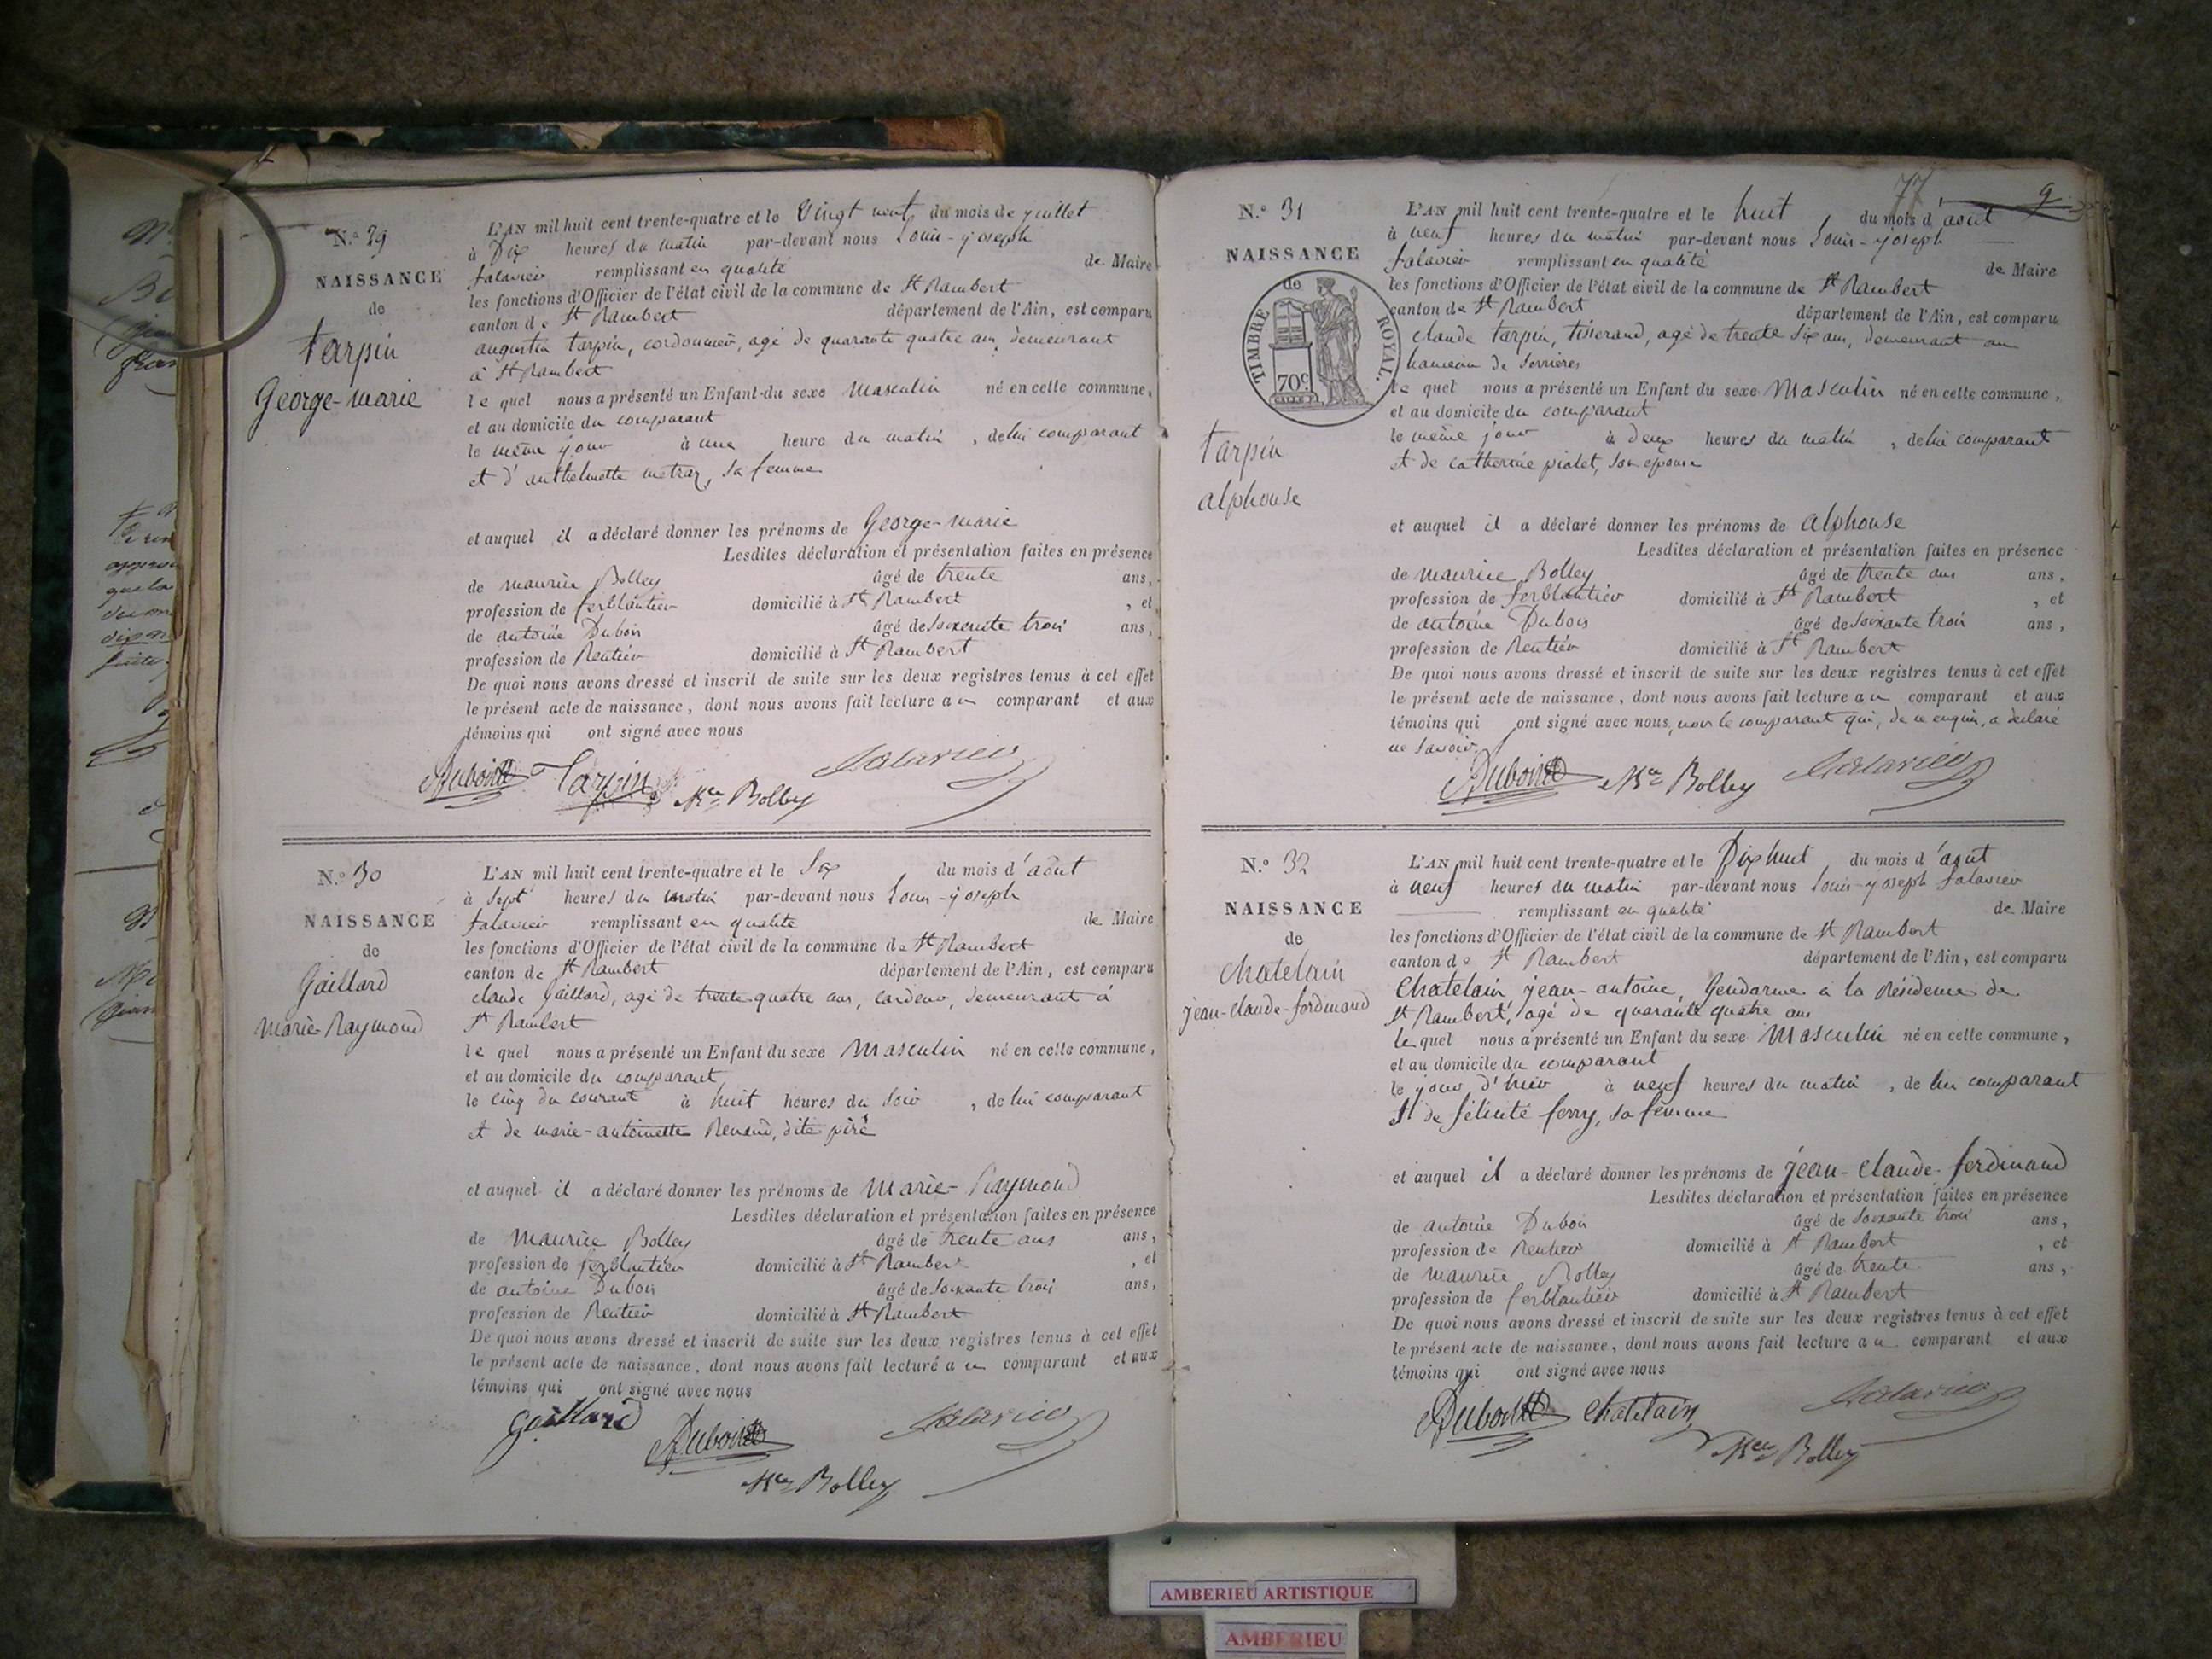 N.º 29
NAISSANCE
de
tarpin
George-marie
L'AN mil huit cent trente-quatre et le Vingt neuf du mois de juillet
à Dix heures du matin par-devant nous Louis-joseph
falavier remplissant en qualité de Maire
les fonctions d'Officier de l'état civil de la commune de St Rambert
canton de St Rambert département de l'Ain, est comparu
augustin tarpin, cordonnier, agé de quarante quatre ans, demeurant
à St Rambert
le quel nous a présenté un Enfant du sexe Masculin né en cette commune,
et au domicile du comparant
le même jour à une heure du matin, de lui comparant
et d'anthelmette metraz, sa femme
et auquel il a déclaré donner les prénoms de George-marie
Lesdites déclaration et présentation faites en présence
de maurice Bolley âgé de trente ans,
profession de ferblantier domicilié à St Rambert, et
de antoine Dubois âgé de soixante trois ans,
profession de Rentier domicilié à St Rambert
De quoi nous avons dressé et inscrit de suite sur les deux registres tenus à cet effet
le présent acte de naissance, dont nous avons fait lecture au comparant et aux
témoins qui ont signé avec nous
Dubois Tarpin Mce Bolley falavier
N.º 30
NAISSANCE
de
Gaillard
Marie-Raymond
L'AN mil huit cent trente-quatre et le Six du mois d'août
à Sept heures du matin par-devant nous Louis-joseph
falavier remplissant en qualité de Maire
les fonctions d'Officier de l'état civil de la commune de St Rambert
canton de St Rambert département de l'Ain, est comparu
claude Gaillard, agé de trente quatre ans, cardeur, demeurant à
St Rambert
le quel nous a présenté un Enfant du sexe Masculin né en cette commune,
et au domicile du comparant
le cinq du courant à huit heures du soir, de lui comparant
et de marie-antoinette Renaud, dite piré
et auquel il a déclaré donner les prénoms de Marie-Raymond
Lesdites déclaration et présentation faites en présence
de Maurice Bolley âgé de trente ans ans,
profession de ferblantier domicilié à St Rambert, et
de antoine Dubois âgé de soixante trois ans,
profession de Rentier domicilié à St Rambert
De quoi nous avons dressé et inscrit de suite sur les deux registres tenus à cet effet
le présent acte de naissance, dont nous avons fait lecture au comparant et aux
témoins qui ont signé avec nous
Gaillard Dubois falavier
Mce Bolley
77 9
N.º 31
NAISSANCE
de
TIMBRE ROYAL.
70c
tarpin
alphonse
L'AN mil huit cent trente-quatre et le huit du mois d'août
à neuf heures du matin par-devant nous Louis-joseph
falavier remplissant en qualité de Maire
les fonctions d'Officier de l'état civil de la commune de St Rambert
canton de St Rambert département de l'Ain, est comparu
claude tarpin, tisserand, agé de trente six ans, demeurant au
hameau de Serrières
le quel nous a présenté un Enfant du sexe Masculin né en cette commune,
et au domicile du comparant
le même jour à deux heures du matin, de lui comparant
et de catherine piolet, son épouse
et auquel il a déclaré donner les prénoms de alphonse
Lesdites déclaration et présentation faites en présence
de maurice Bolley âgé de trente ans ans,
profession de ferblantier domicilié à St Rambert, et
de antoine Dubois âgé de soixante trois ans,
profession de Rentier domicilié à St Rambert
De quoi nous avons dressé et inscrit de suite sur les deux registres tenus à cet effet
le présent acte de naissance, dont nous avons fait lecture au comparant et aux
témoins qui ont signé avec nous, non le comparant qui, de ce enquis, a déclaré
ne savoir.
Dubois Mce Bolley falavier
N.º 32
NAISSANCE
de
chatelain
jean-claude-ferdinand
L'AN mil huit cent trente-quatre et le Dix huit du mois d'août
à neuf heures du matin par-devant nous Louis-joseph falavier
remplissant en qualité de Maire
les fonctions d'Officier de l'état civil de la commune de St Rambert
canton de St Rambert département de l'Ain, est comparu
Chatelain jean-antoine, Gendarme à la Résidence de
St Rambert, agé de quarante quatre ans
le quel nous a présenté un Enfant du sexe Masculin né en cette commune,
et au domicile du comparant
le jour d'hier à neuf heures du matin, de lui comparant
et de félicité ferry, sa femme
et auquel il a déclaré donner les prénoms de jean-claude-ferdinand
Lesdites déclaration et présentation faites en présence
de antoine Dubois âgé de soixante trois ans,
profession de Rentier domicilié à St Rambert, et
de maurice Bolley âgé de trente ans,
profession de ferblantier domicilié à St Rambert
De quoi nous avons dressé et inscrit de suite sur les deux registres tenus à cet effet
le présent acte de naissance, dont nous avons fait lecture au comparant et aux
témoins qui ont signé avec nous
Dubois chatelain falavier
Mce Bolley
AMBERIEU ARTISTIQUE
AMBERIEU